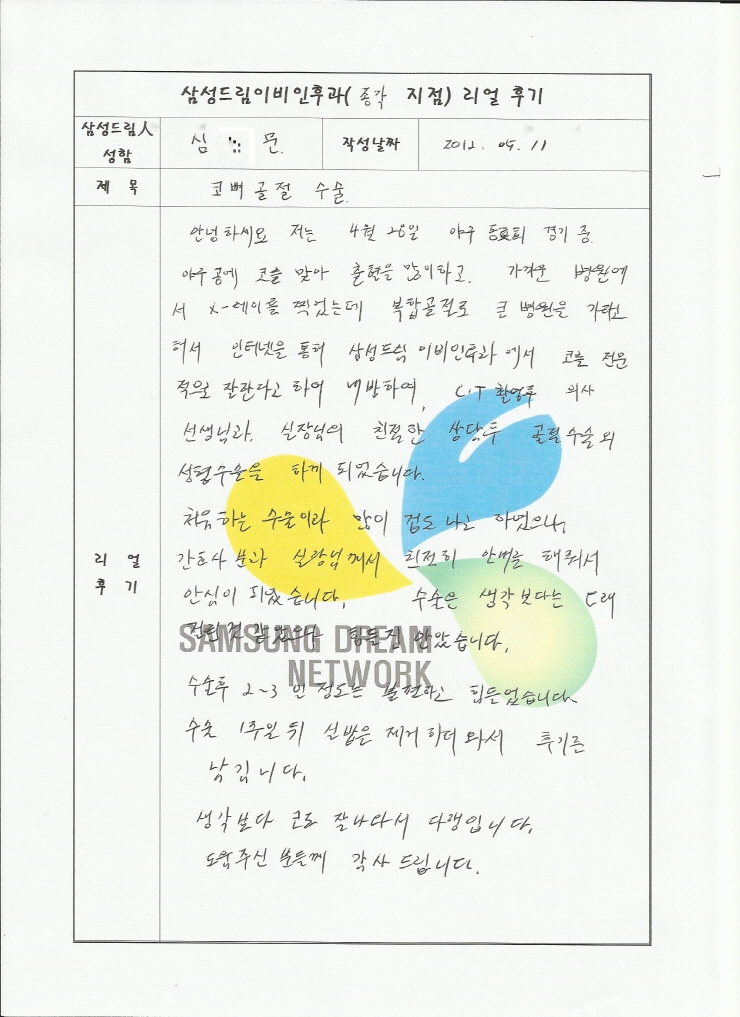 삼성드림이비인후과( 종각 지점) 리얼 후기
삼성드림人 성함
심 문.
작성날짜
2012. 05. 11
제 목
코뼈 골절 수술.
리 얼 후 기
안녕하세요 저는 4월 28일 야구 동호회 경기 중.
야구공에 코를 맞아 출혈을 많이하고. 가까운 병원에
서 X-레이를 찍었는데 복합골절로 큰 병원을 가라고
해서 인터넷을 통해 삼성드림 이비인후과 에서 코를 전문
적으로 잘한다고 하여 내방하여, C.T 촬영후 의사
선생님과. 실장님의 친절한 상담후 골절수술 외
성형수술을 하게 되었습니다.
처음하는 수술이라 많이 겁도 나고 하였으나,
간호사 분과 실장님께서 친절히 안내를 해줘서
안심이 되었습니다. 수술은 생각보다는 오래
걸린것 같았으나 힘들진 않았습니다.
SAMSUNG DREAM
NETWORK
수술후 2~3일 정도는 불편하고 힘들었습니다.
수술 1주일 뒤 실밥은 제거하러 와서 후기를
남깁니다.
생각보다 코도 잘나와서 다행입니다.
도와주신 분들께 감사 드립니다.